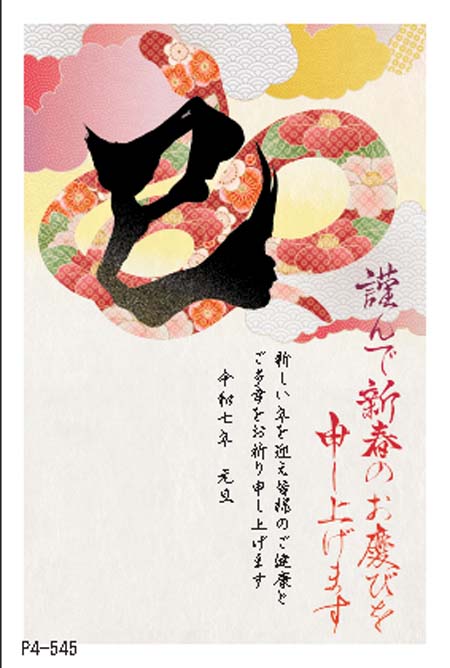 巳
謹んで新春のお慶びを
申し上げます
新しい年を迎え皆様のご健康と
ご多幸をお祈り申し上げます
令和七年 元旦
P4-545